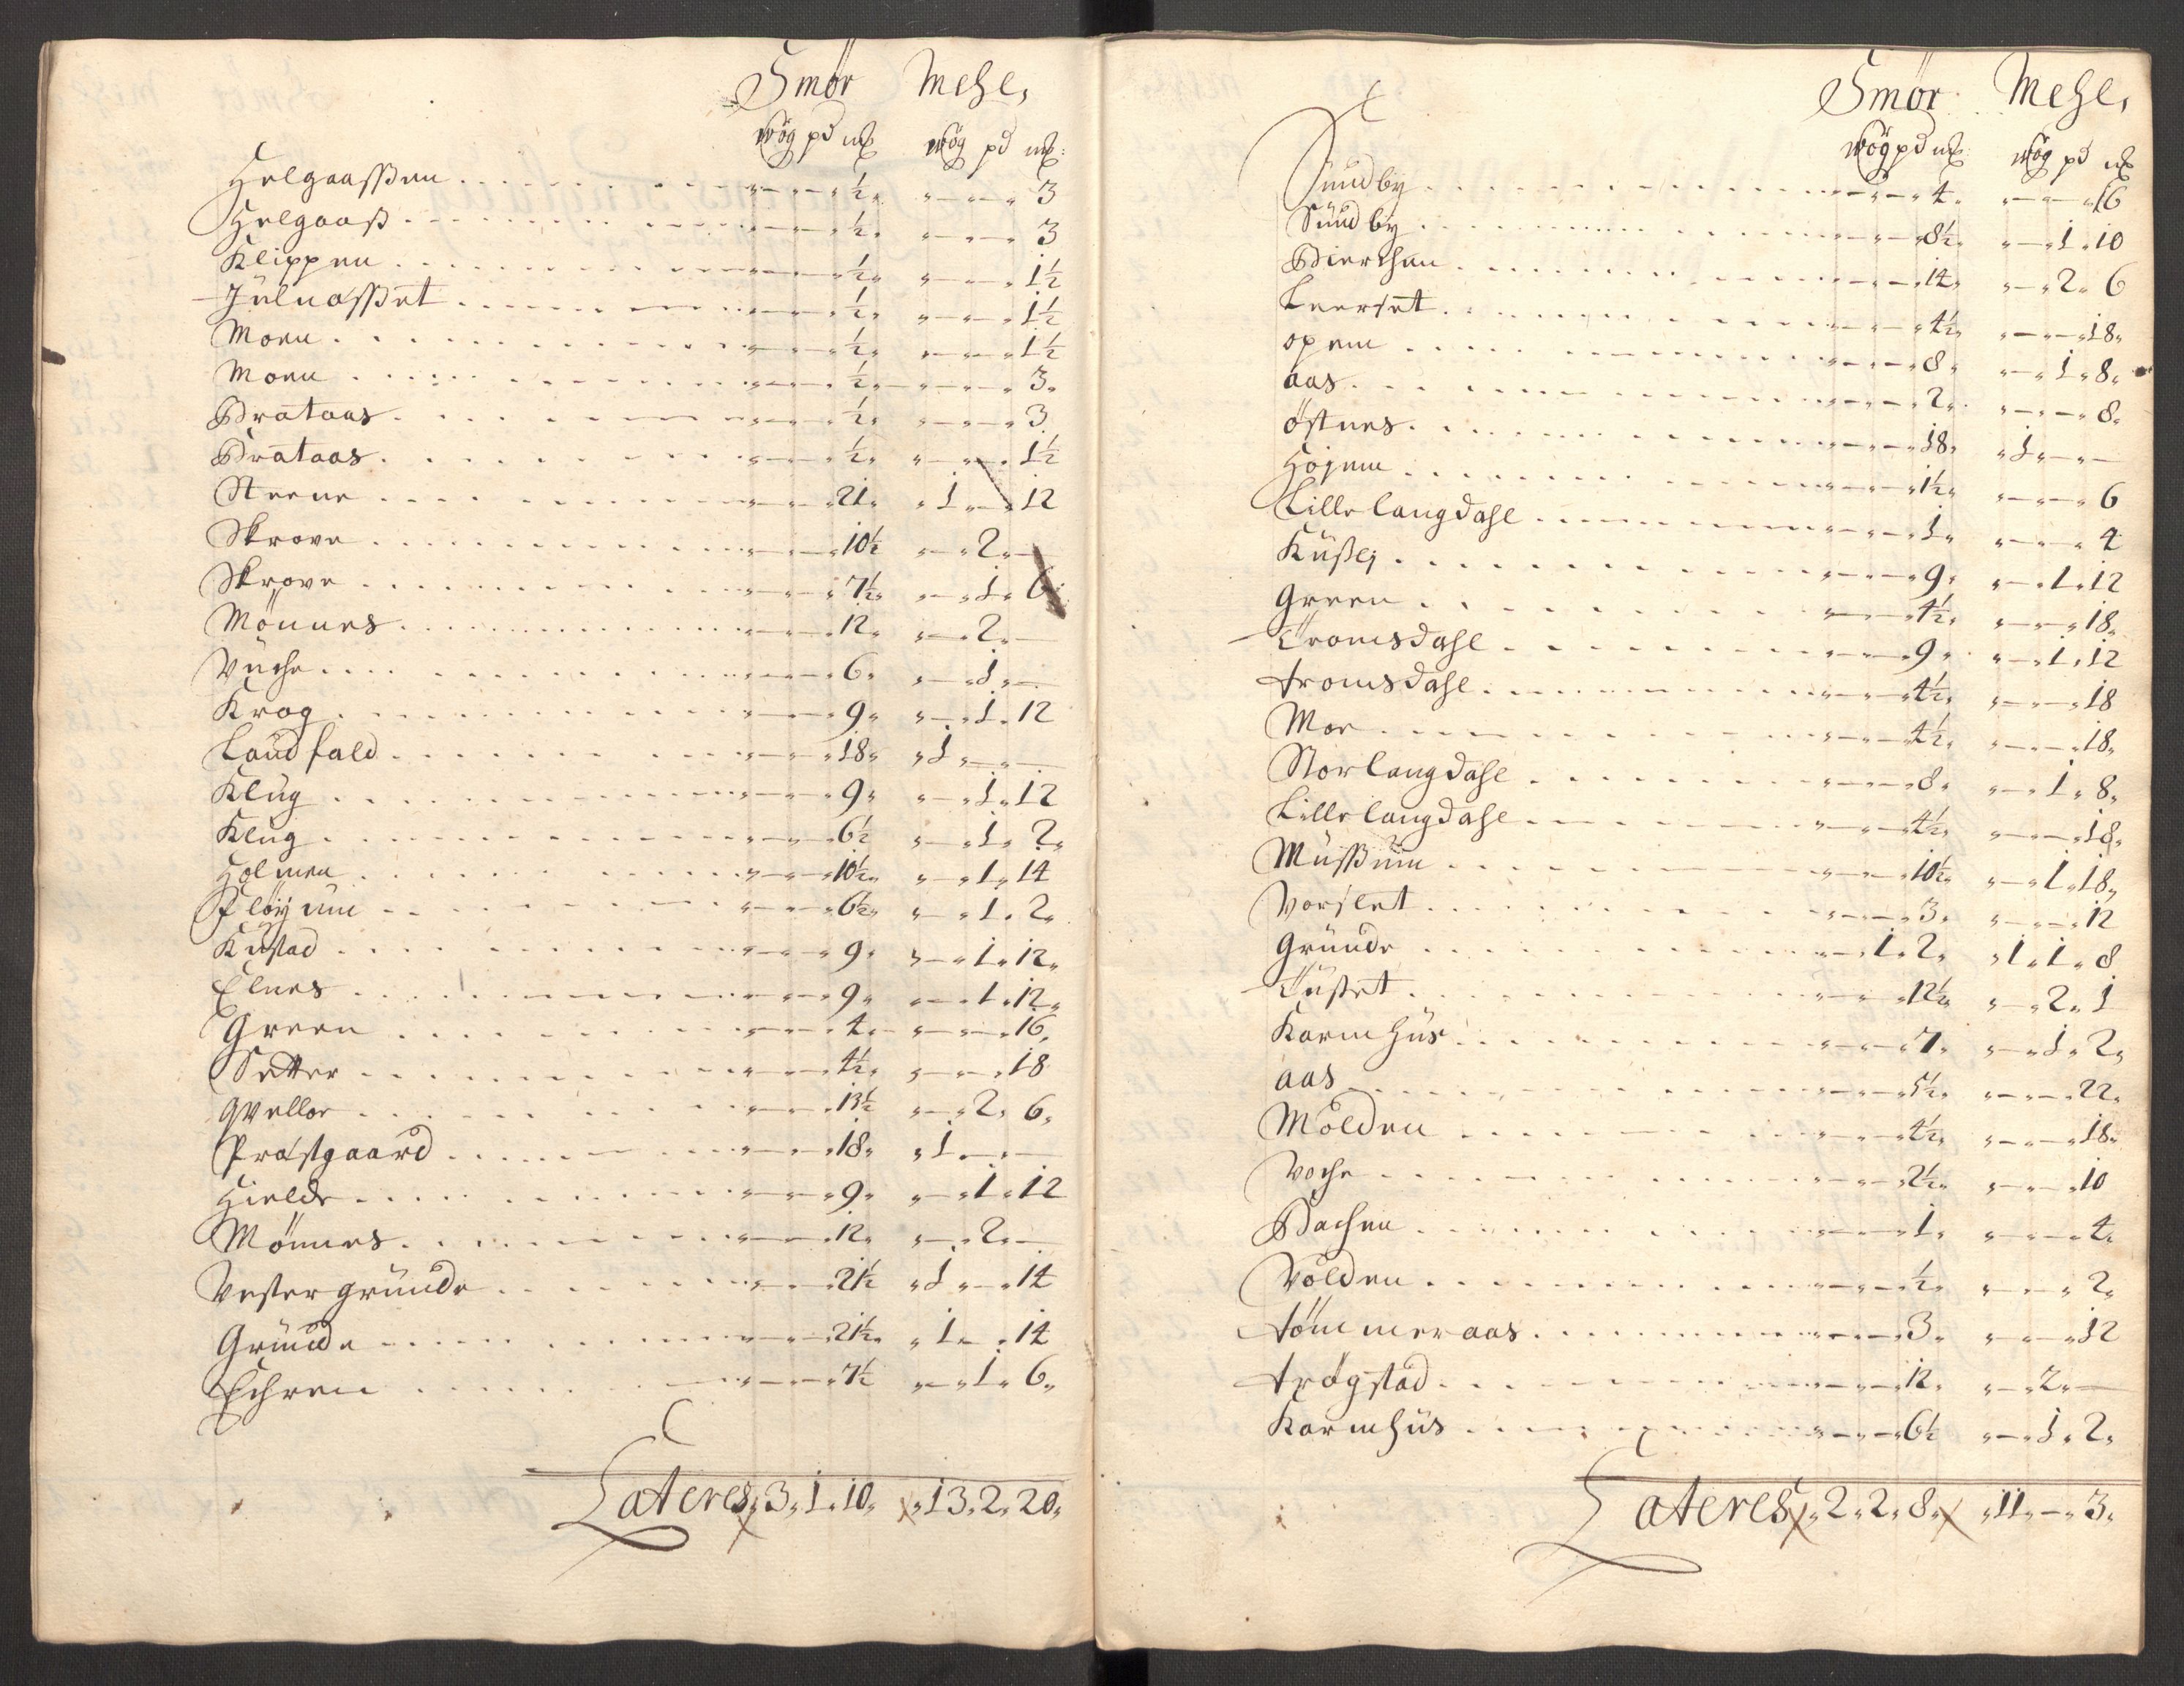 Smör Mehl,
wög pd m℔ wög pd m℔:
Helgaassen - - ½ - - 3
Helgaass - - ½ - - 3
Klippen - - ½ - - 1½
Julnasset - - ½ - - 1½
Moen - - ½ - - 1½
Moen - - ½ - - 3
Brataas - - ½ - - 3
Brataas - - ½ - - 1½
Steene - - 21 1 - 12
Skrove - - 10½ - 2 -
Skrove - - 7½ - 1 6
Mönnes - - 12 - 2 -
Vuche - - 6 - 1 -
Krog - - 9 - 1 12
Landfald - - 18 1 - -
Klug - - 9 - 1 12
Klug - - 6½ - 1 2
Holmen - - 10½ - 1 14
Fløÿum - - 6½ - 1 2
Kustad - - 9 - 1 12
Elnes - - 9 - 1 12
Green - - 4 - - 16
Setter - - 4½ - - 18
Qvellor - - 13½ - 2 6
Præstgaard - - 18 1 - -
Hielde - - 9 - 1 12
Mönnes - - 12 - 2 -
Vestergrunde - - 21½ 1 - 14
Grunde - - 21½ 1 - 14
Echren - - 7½ - 1 6
Lateres 3 1 10 13 2 20
Smör Mehl,
wög pd m℔ wög pd m℔
Sundby - - 4 - - 16
Sundby - - 8½ - 1 10
Bierchen - - 14 - 2 6
Leerset - - 4½ - - 18
opem - - 8 - 1 8
aas - - 2 - - 8
östnes - - 18 1 - -
Höjem - - 1½ - - 6
Lillelangdahl - - 1 - - 4
Kußlj - - 9 - 1 12
Green - - 4½ - - 18
Tromsdahl - - 9 - 1 12
tromsdahl - - 4½ - - 18
Moe - - 4½ - - 18
Storlangdahl - - 8 - 1 8
Lillelangdahl - - 4½ - - 18
Mussum - - 10½ - 1 18
Vorslet - - 3 - - 12
Grunde - 1 2 1 1 8
Tusset - - 12½ - 2 1
Karmhus - - 7 - 1 2
aas - - 5½ - - 22
Molden - - 4½ - - 18
Voche - - 2½ - - 10
Bachen - - 1 - - 4
Volden - - ½ - - 2
tömmeraas - - 3 - - 12
trögstad - - 12 - 2 -
Karmhus - - 6½ - 1 2
Lateres 2 2 8 11 - 3